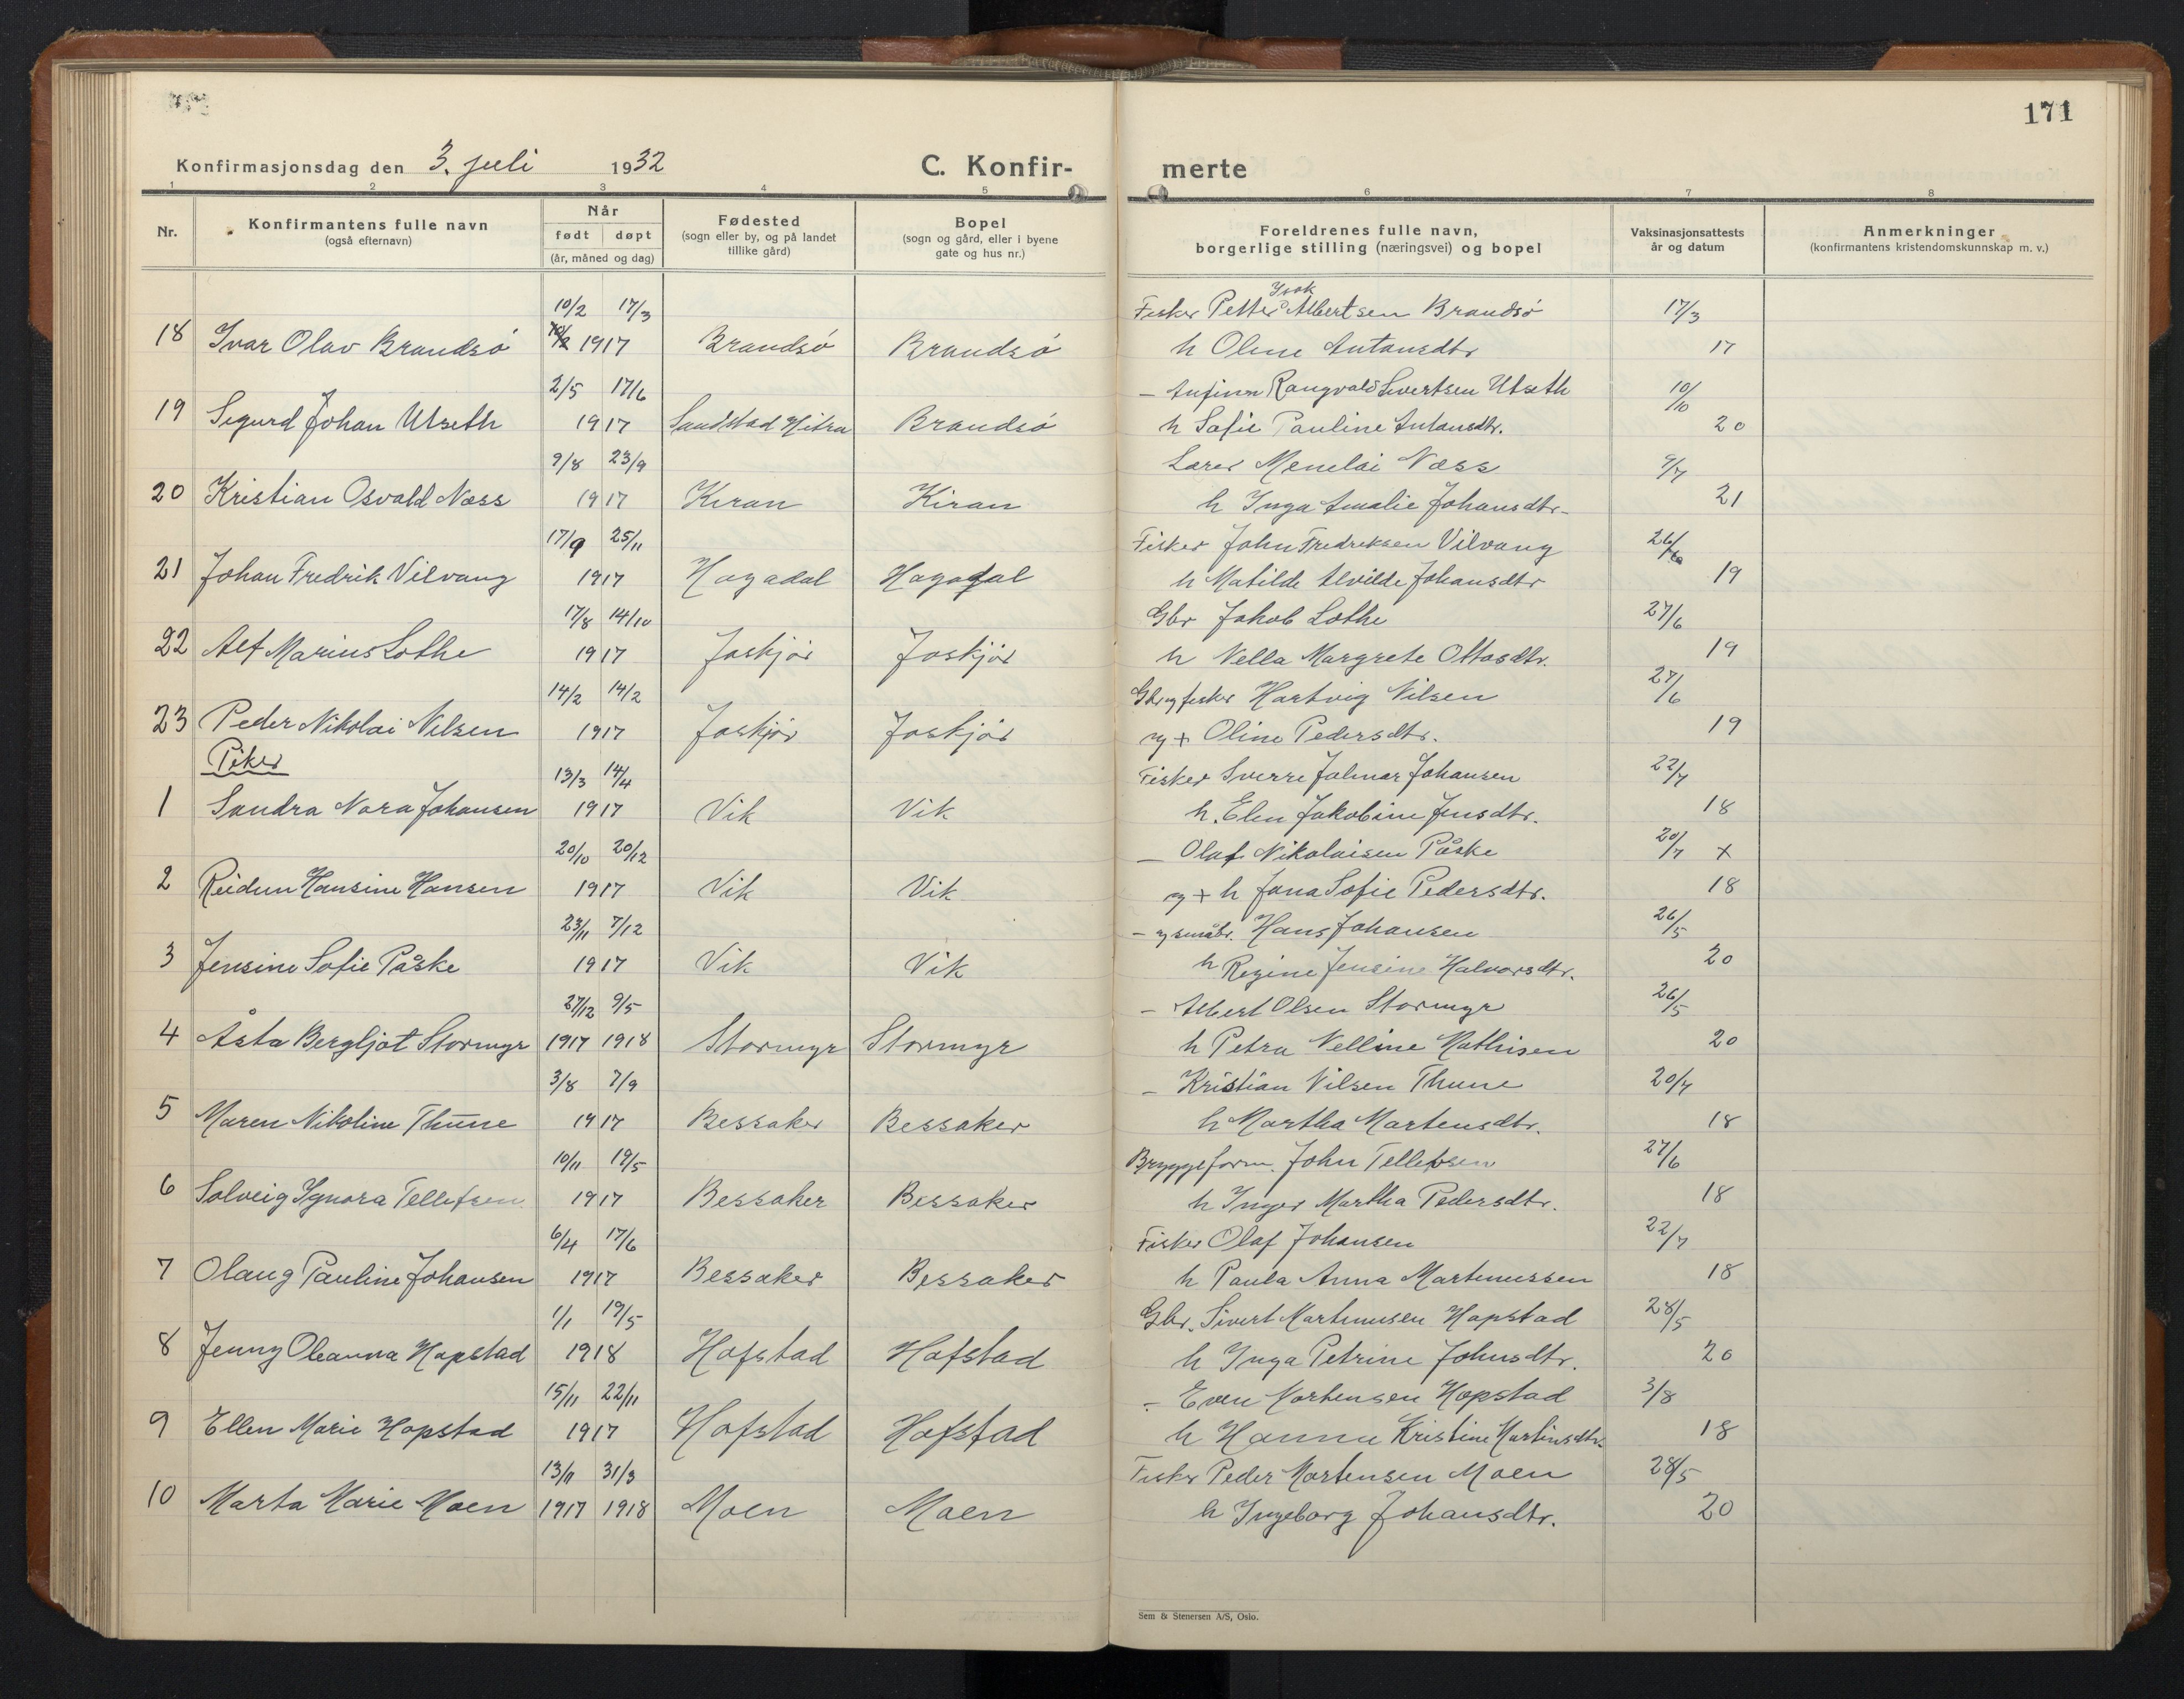 171
Konfirmasjonsdag den 3. juli 1932
C. Konfir- merte
1 2 3 4 5 6 7 8
Nr.
Konfirmantens fulle navn
(også efternavn)
Når
født døpt
(år, måned og dag)
Fødested
(sogn eller by, og på landet
tillike gård)
Bopel
(sogn og gård, eller i byene
gate og hus nr.)
Foreldrenes fulle navn,
borgerlige stilling (næringsvei) og bopel
Vaksinasjonsattests
år og datum
Anmerkninger
(konfirmantens kristendomskunnskap m. v.)
10/2 17/3 Fisker Petter Albertsen Brandsø 17/3
18 Ivar Olav Brandsø 1917 Brandsø Brandsø h Oline Antonsdtr 17
2/5 17/6 – Anfinn Rangvald Sivertsen Utseth 10/10
19 Sigurd Johan Utseth 1917 Sandstad Hitra Brandsø h Sofie Pauline Antonsdtr. 20
9/8 23/9 Lærer Menelai Næss 9/7
20 Kristian Osvald Næss 1917 Kiran Kiran h Inga Amalie Johansdtr. 21
17/9 25/11 Fisker John Fredriksen Vilvang 26/
21 Johan Fredrik Vilvang 1917 Hagadal Hagadal h Matilde Alvilde Johansdtr 19
17/8 14/10 Gbr Jakob Lothe 27/6
22 Alf Marius Lothe 1917 Joskjør Joskjør h Nella Margrete Ottosdtr. 19
14/2 14/2 Gbr og fisker Hartvig Nilsen 27/6
23 Peder Nikolai Nilsen 1917 Joskjør Joskjør og + Oline Pedersdtr. 19
Piker
13/3 14/4 Fisker Sverre Jalmar Johansen 22/7
1 Sandra Nora Johansen 1917 Vik Vik h. Elen Jakobine Jensdtr. 18
20/10 20/12 – Olaf Nikolaisen Påske 20/7 x
2 Reidun Hansine Hansen 1917 Vik Vik og + h Jana Sofie Pedersdtr. 18
23/11 7/12 – og småbr. Hans Johansen 26/5
3 Jensine Sofie Påske 1917 Vik Vik h Regine Jensine Halvorsdtr. 20
27/12 9/5 – Albert Olsen Stormyr 26/5
4 Åsta Bergljot Stormyr 1917 1918 Stormyr Stormyr h Petra Nelline Mathisen 20
3/8 7/9 – Kristian Nilsen Thune 20/7
5 Maren Nikoline Thune 1917 Bessaker Bessaker h Martha Martensdtr. 18
10/11 19/5 Bryggeform. John Tellefsen 27/6
6 Solveig Ignora Tellefsen 1917 Bessaker Bessaker h Inger Martha Pedersdtr. 18
6/4 17/6 Fisker Olaf Johansen 22/7
7 Olaug Pauline Johansen 1917 Bessaker Bessaker h Paula Anna Martenussen 18
1/1 19/5 Gbr. Sivert Martinusen Hopstad 28/5
8 Jenny Oleanna Hopstad 1918 Hofstad Hofstad h Inga Petrine Johnsdtr. 20
15/11 22/11 – Even Mortensen Hopstad 3/8
9 Ellen Marie Hopstad 1917 Hofstad Hofstad h Hanna Kristine Martinsdtr. 18
13/11 31/3 Fisker Peder Mortensen Moen 28/5
10 Marta Marie Moen 1917 1918 Moen Moen h Ingeborg Johansdtr. 20
Sem & Stenersen A/S, Oslo.